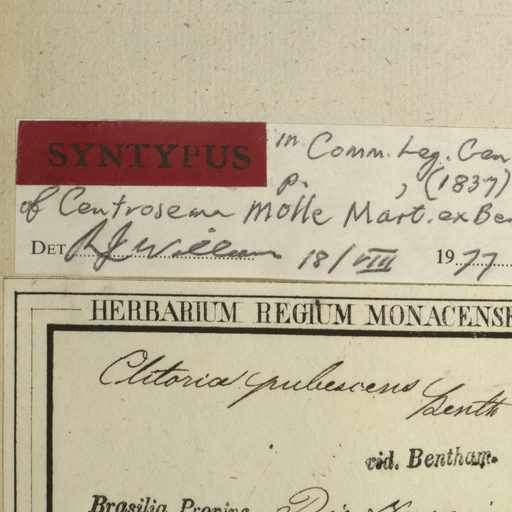 SYNTYPUS in Comm. Leg. Gen
p. , (1837)
of Centrosema molle Mart. ex Ben
DET. R J Williams 18/VIII 1977
HERBARIUM REGIUM MONACENSE
Clitoria pubescens Benth
vid. Bentham.
Brasilia Provinc.